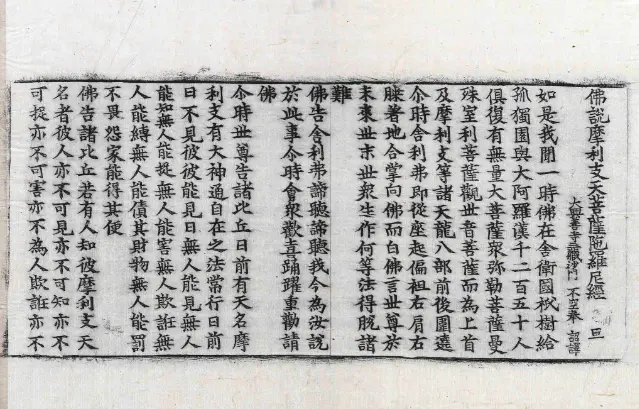 佛說摩利支天菩薩陀羅尼經 旦
大興善寺三藏沙門 不空奉 詔譯
如是我聞一時佛在舍衛國祇樹給
孤獨園與大阿羅漢千二百五十人
俱復有無量大菩薩衆弥勒菩薩曼
殊室利菩薩觀世音菩薩而為上首
及摩利支等諸天龍八部前後圍遶
尒時舍利弗即從座起偏袒右肩右
膝著地合掌向佛而白佛言世尊於
未来世末世衆生作何等法得脫諸
難
佛告舍利弗諦聽諦聽我今為汝說
於此事尒時會衆歡喜踊躍重勸請
佛
尒時世尊告諸比丘日前有天名摩
利支有大神通自在之法常行日前
日不見彼彼能見日無人能見無人
能知無人能捉無人能害無人欺誑無
人能縛無人能債其財物無人能罰
不畏怨家能得其便
佛告諸比丘若有人知彼摩利支天
名者彼人亦不可見亦不可知亦不
可捉亦不可害亦不為人欺誑亦不